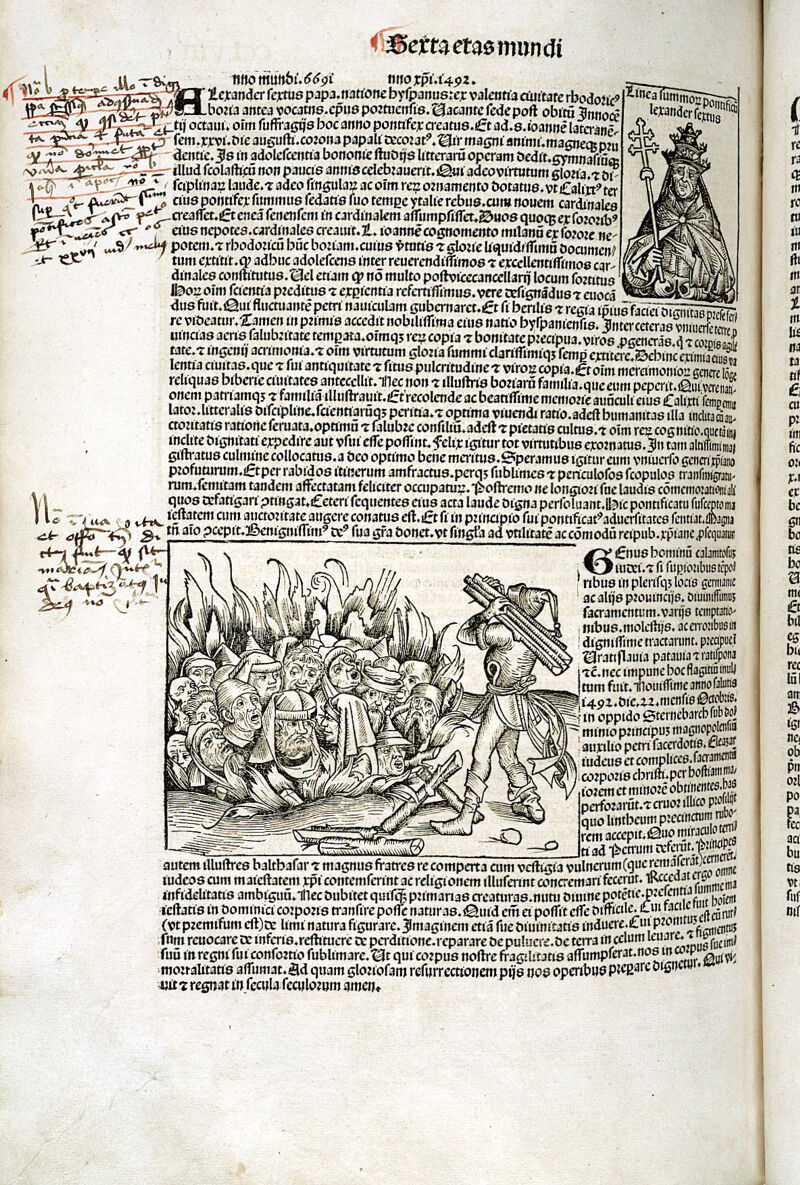 Sexta etas mundi
nno mundi.6691 nno xp̄i.1492.
Linea summoꝝ pontificū
lexander sextus
ALexander sextus papa.natione hyspanus:ex valentia ciuitate rhodoricꝰ
boria antea vocatus.ep̄us portuensis.Uacante sede post obitū Innocē
tij octaui.oīm suffragijs hoc anno pontifex creatus.Et ad.s.ioannē laterane.
sem.xxvi.die augusti.corona papali decoratꝰ.Uir magni animi.magneqꝫ pru
dentie.Is in adolescentia bononie studijs litterarū operam dedit.gymnasiūqꝫ
illud scolasticū non paucis annis celebrauerit.Qui adeo virtutum gloria.⁊ di-
sciplinaꝝ laude.⁊ adeo singulaꝝ ac oīm reꝝ ornamento dotatus.vt Calixꝰ ter
cius pontifex summus sedatis suo tempe ytalie rebus.cum nouem cardinales
creasset.Et eneā senensem in cardinalem assumpsisset.Duos quoqꝫ ex sororibꝰ
eius nepotes.cardinales creauit.L.ioannē cognomento milanū ex sorore ne-
potem.⁊ rhodoricū hūc boriam.cuius v̄tutis ⁊ glorie liquidissimū documen
tum extitit.ꝙ adhuc adolescens inter reuerendissimos ⁊ excellentissimos car-
dinales constitutus.Uel etiam ꝙ nō multo post vicecancellarij locum sortitus
Hoꝝ oīm scientia preditus ⁊ exp̄ientia refertissimus.vere designādus ⁊ euocā
dus fuit.Qui fluctuantē petri nauiculam gubernaret.Et si herilis ⁊ regia ip̄ius faciei dignitas
re videatur.Tamen in primis accedit nobilissima eius natio hyspaniensis.Inter ceteras vniuerse terre ꝓ
uincias aeris salubritate temp̄ata.oīmqꝫ reꝝ copia ⁊ bonitate precipua.viros ꝓgenerās.q̄ ⁊ corpis agili
tate.⁊ ingenij acrimonia.⁊ oīm virtutum gloria summi clarissimiqꝫ semp̄ extitere.Dehinc eximia eius va
lentia ciuitas.que ⁊ sui antiquitate ⁊ situs pulcritudine ⁊ viroꝝ copia.Et oīm mercimonioꝝ genere lōge
reliquas hiberie ciuitates antecellit.Nec non ⁊ illustris boriaꝝ familia.que eum peperit.Qui vere nati-
onem patriamqꝫ ⁊ familiā illustrauit.Et recolende ac beatissime memorie auūculi eius Calixti semp̄ emu
lator.litteralis discipline.scientiarūqꝫ peritia.⁊ optima viuendi ratio.adest humanitas illa inclita cū au-
ctoritatis ratione seruata.optimū ⁊ salubre consiliū.adest ⁊ pietatis cultus.⁊ oīm reꝝ cognitio.que tā
inclite dignitati expedire aut vsui esse possint.Felix igitur tot virtutibus exornatus.In tam altissimi ma
gistratus culmine collocatus.a deo optimo bene meritus.Speramus igitur eum vniuerso generi xp̄iano
profuturum.Et per rabidos itinerum amfractus.perqꝫ sublimes ⁊ periculosos scopulos transmigratu-
rum.semitam tandem affectatam feliciter occupatuꝝ.Postremo ne longiori sue laudis cōmemorationi ali
quos defatigari ꝯtingat.Ceteri sequentes eius acta laude digna persoluant.Hic pontificatu suscepto ma
iestatem cum auctoritate augere conatus est.Et si in principio sui pontificatꝰ aduersitates sentiat.Magna
tn̄ aīo ꝯcepit.Benignissimꝰ deꝰ sua grā donet.vt singla ad vtilitatē ac cōmodū reipub.xp̄iane.ꝓsequatur
GEnus hominū calamitosuꝫ
iudei.⁊ si supioribus tēpo
ribus in plerisqꝫ locis germanie
ac alijs prouincijs.diuinissimum
sacramentum.varijs temptatio-
nibus.molestijs.ac erroribus in
dignissime tractarunt.precipue ī
Uratislauia patauia ⁊ ratispona
⁊c̄.nec impune hoc flagitiū inul
tum fuit.Nouissime anno salutis
1492.die.22.mensis Octobris.
in oppido Sternebarch sub do
minio principuꝫ magnopolensiū
auxilio petri sacerdotis.Eleazar
iudeus et complices.sacramentū
corporis christi.per hostiam ma
iorem et minorē obtinentes.has
perforarūt.⁊ cruor illico prosilijt
quo lintheum precinctum rubo-
rem accepit.Quo miraculo terri
ti ad Petrum deferūt.Principes
autem illustres balthasar ⁊ magnus fratres re comperta cum vestigia vulnerum(que remāserāt)cernerēt.
iudeos cum maiestatem xp̄i contemserint ac religionem illuserint concremari fecerūt.Recedat ergo omne
infidelitatis ambiguū.Nec dubitet quisqꝫ primarias creaturas.nutu diuine potētie.presentia summe ma
iestatis in dominici corporis transire posse naturas.Quid em̄ ei possit esse difficile.Cui facile fuit hoīem
(vt premisum est)de limi natura figurare.Imaginem etiā sue diuinitatis induere.Cui promtus est eū rur
sum reuocare de inferis.restituere de perditione.reparare de puluere.de terra in celum leuare.⁊
suū in regni sui consortio sublimare.Ut qui corpus nostre fragilitatis assumpserat.nos in corpus sue im
mortalitatis assumat.Ad quam gloriosam resurrectionem pijs nos operibus prepare dignetur.Qui vi-
uit ⁊ regnat in secula seculorum amen.